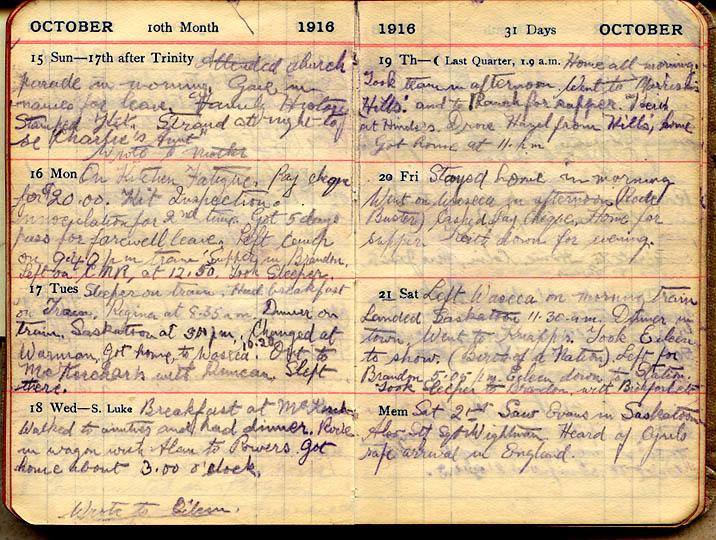 OCTOBER 10th Month 1916
15 Sun—17th after Trinity Attended church
parade in morning. Gave in
names for leave. Family History
Stamped Kit. Strand at night to
se Charlie's Aunt
Wrote to Mother
16 Mon On Kitchen Fatigue. Pay cheque
for $20.00. Kit Inspection.
innoculation for 2nd time. Got 5 days
pass for farewell leave. Left camp
on pm train. Supper in Brandon.
Left on CNR. at 12.50. Took Sleeper.
17 Tues Sleeper on train. Had breakfast
on Train. Regina at 8.35 am. Dinner on
train. Saskatoon at pm, Changed at
Warman, got home to Waseca. 10.20 Out to
McKerchars with Duncan. Slept
there.
18 Wed—S. Luke Breakfast at
Walked to aunties and had dinner. Rode
in wagon with Alan to Powers. Got
home about 3.00 o'clock.
Wrote to Eileen.
1916 31 Days OCTOBER
19 Th—☾ Last Quarter, 1.9 a.m. Home all morning.
Took team in afternoon. Went to
Hills' and to Ranch for supper.
at Hinde's. Drove Hazel from Hills', home
Got home at 11. p.m
20 Fri Stayed home in morning
Went on Waseca in afternoon (Rode
Buster) Cashed Pay Cheque. Home for
supper. down for evening.
21 Sat Left Waseca on morning train
Landed Saskatoon 11-30 a.m. Dinner in
town. Went to Knapps. Took Eileen
to show. (Birth of a Nation). Left for
Brandon 5.05 p.m Eileen down to Station.
Took Sleeper to Brandon, with
Mem Sat 21st Saw Evans in Saskatoon
Also Sgt Wightman. Heard of Cyrils
safe arrival in England.